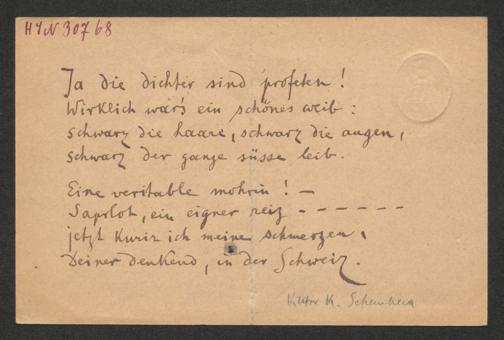 HIN 30768
Ja die dichter sind profeten!
Wirklich wär's ein schönes weib:
Schwarz die haare, schwarz die augen,
Schwarz der ganze süsse leib.
Eine veritable mohrin! —
Saprlot, ein eigner reiz – – – – – –
jetzt kurir ich meine schmerzen,
Deiner denkend, in der Schweiz.
K.